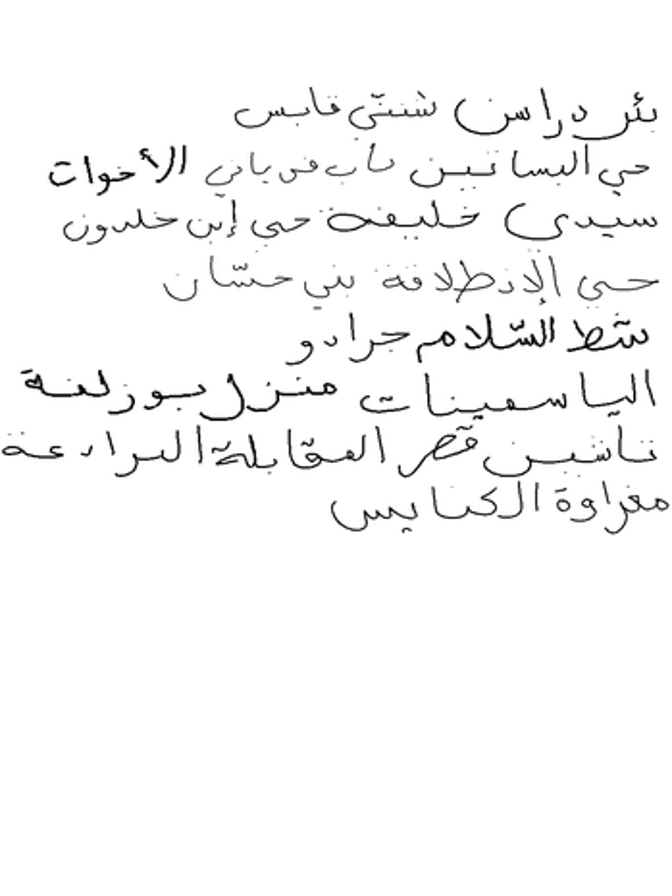 بئر دراسن شنني قابس
حي البساتين باب فرياني الأخوات
سيدي خليفة حي إبن خلدون
حي الإنطلاقة بني حسّان
شط السّلام جرادو
الياسمينات منزل بوزلفة
تاشين قصر المقابلة البرادعة
مغراوة الكنايس